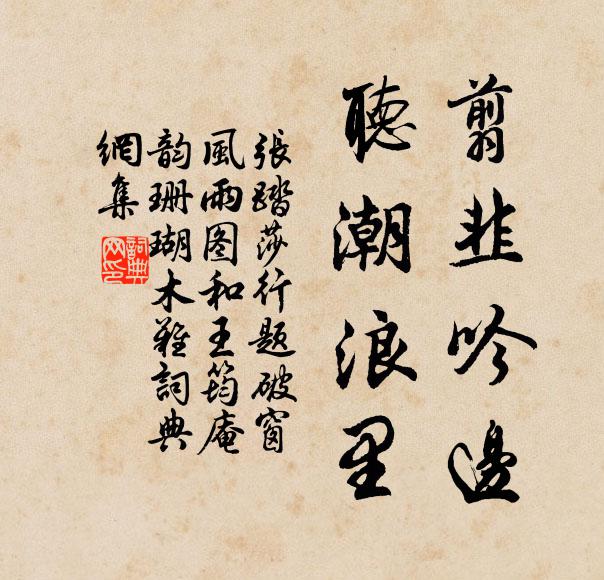 翦韭吟邊
聽潮浪里
張踏莎行題破窗
風雨图和王筠庵
韵珊瑚木難詞典
網集
詞典網印